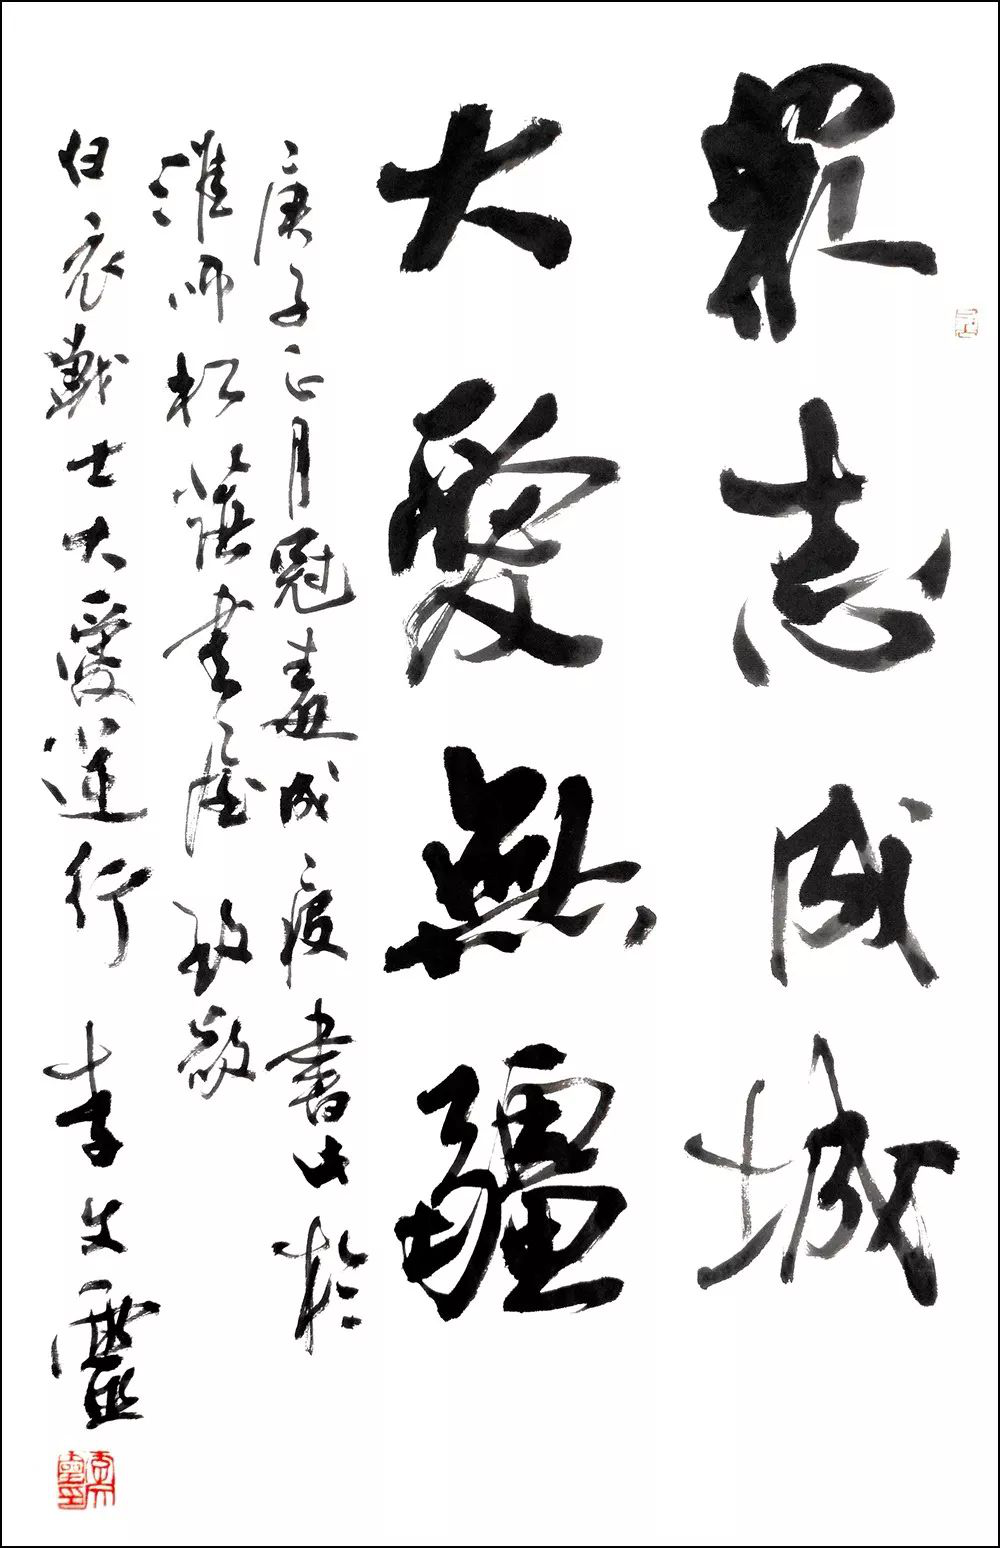 眾志成城
大愛無疆
庚子正月冠毒成疫書此於
淮師松蔭書屋致敬
白衣戰士大愛逆行 李文靈